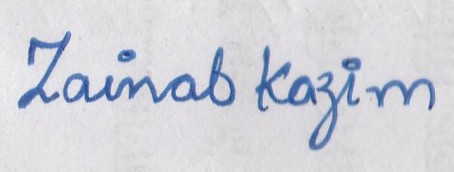 Zainab Kazim